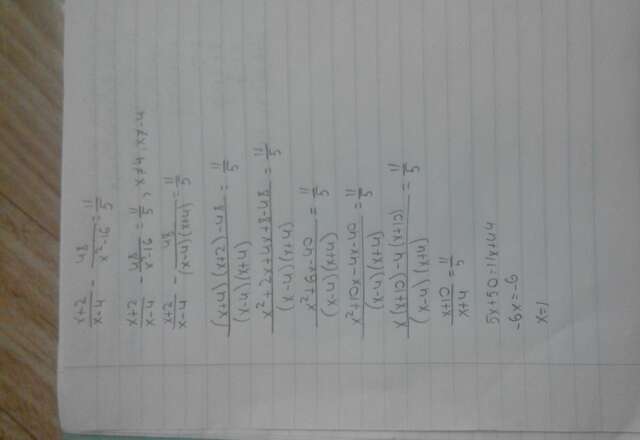 (x+2)/(x-4) - 48/(x²-16) = 11/5
(x+2)/(x-4) - 48/(x²-16) = 11/5, x≠4, x≠-4
(x+2)/(x-4) - 48/((x-4)(x+4)) = 11/5
((x+4)(x+2)-48)/((x-4)(x+4)) = 11/5
(x²+2x+4x+8-48)/((x-4)(x+4)) = 11/5
(x²+6x-40)/((x-4)(x+4)) = 11/5
(x²+10x-4x-40)/((x-4)(x+4)) = 11/5
(x(x+10)-4(x+10))/((x-4)(x+4)) = 11/5
(x+10)/(x+4) = 11/5
5x+50=11x+44
-6x=-6
x=1